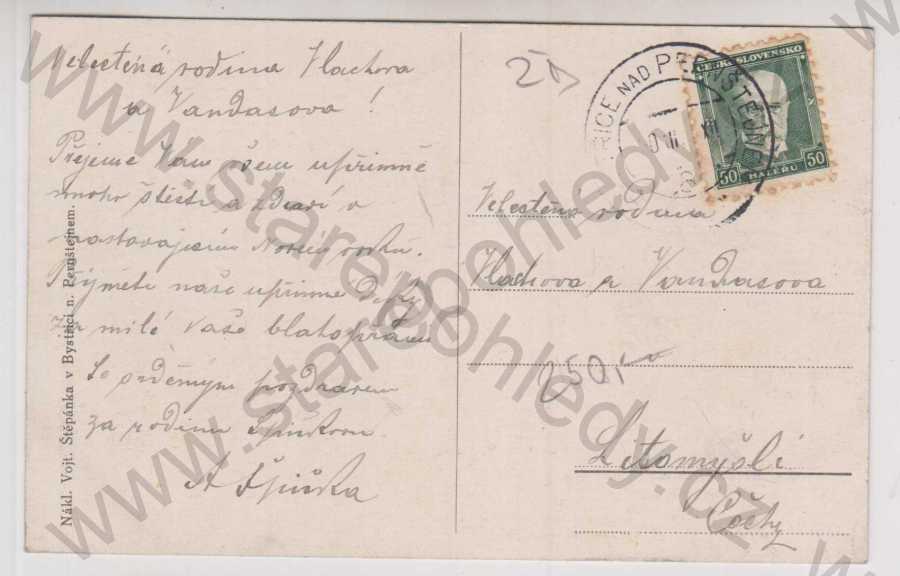 Velectěná rodina Vlachova
a Vandasova!
Přejeme Vám všem upřímně
mnoho štěstí a zdraví v
nastávajícím Novém roku.
Přijměte naše upřímné Díky
za milé Vaše blahopřání
Se srdečným pozdravem
za rodinu
A
Nákl. Vojt. Štěpánka v Bystřici n. Pernštejnem.
ŘICE NAD PERNŠTEJNEM
ČESKOSLOVENSKO
50 HALÉŘŮ 50
Velectěná rodina
Vlachova a Vandasova
250,-
Litomyšli
Čechy
www.starepohledy.cz